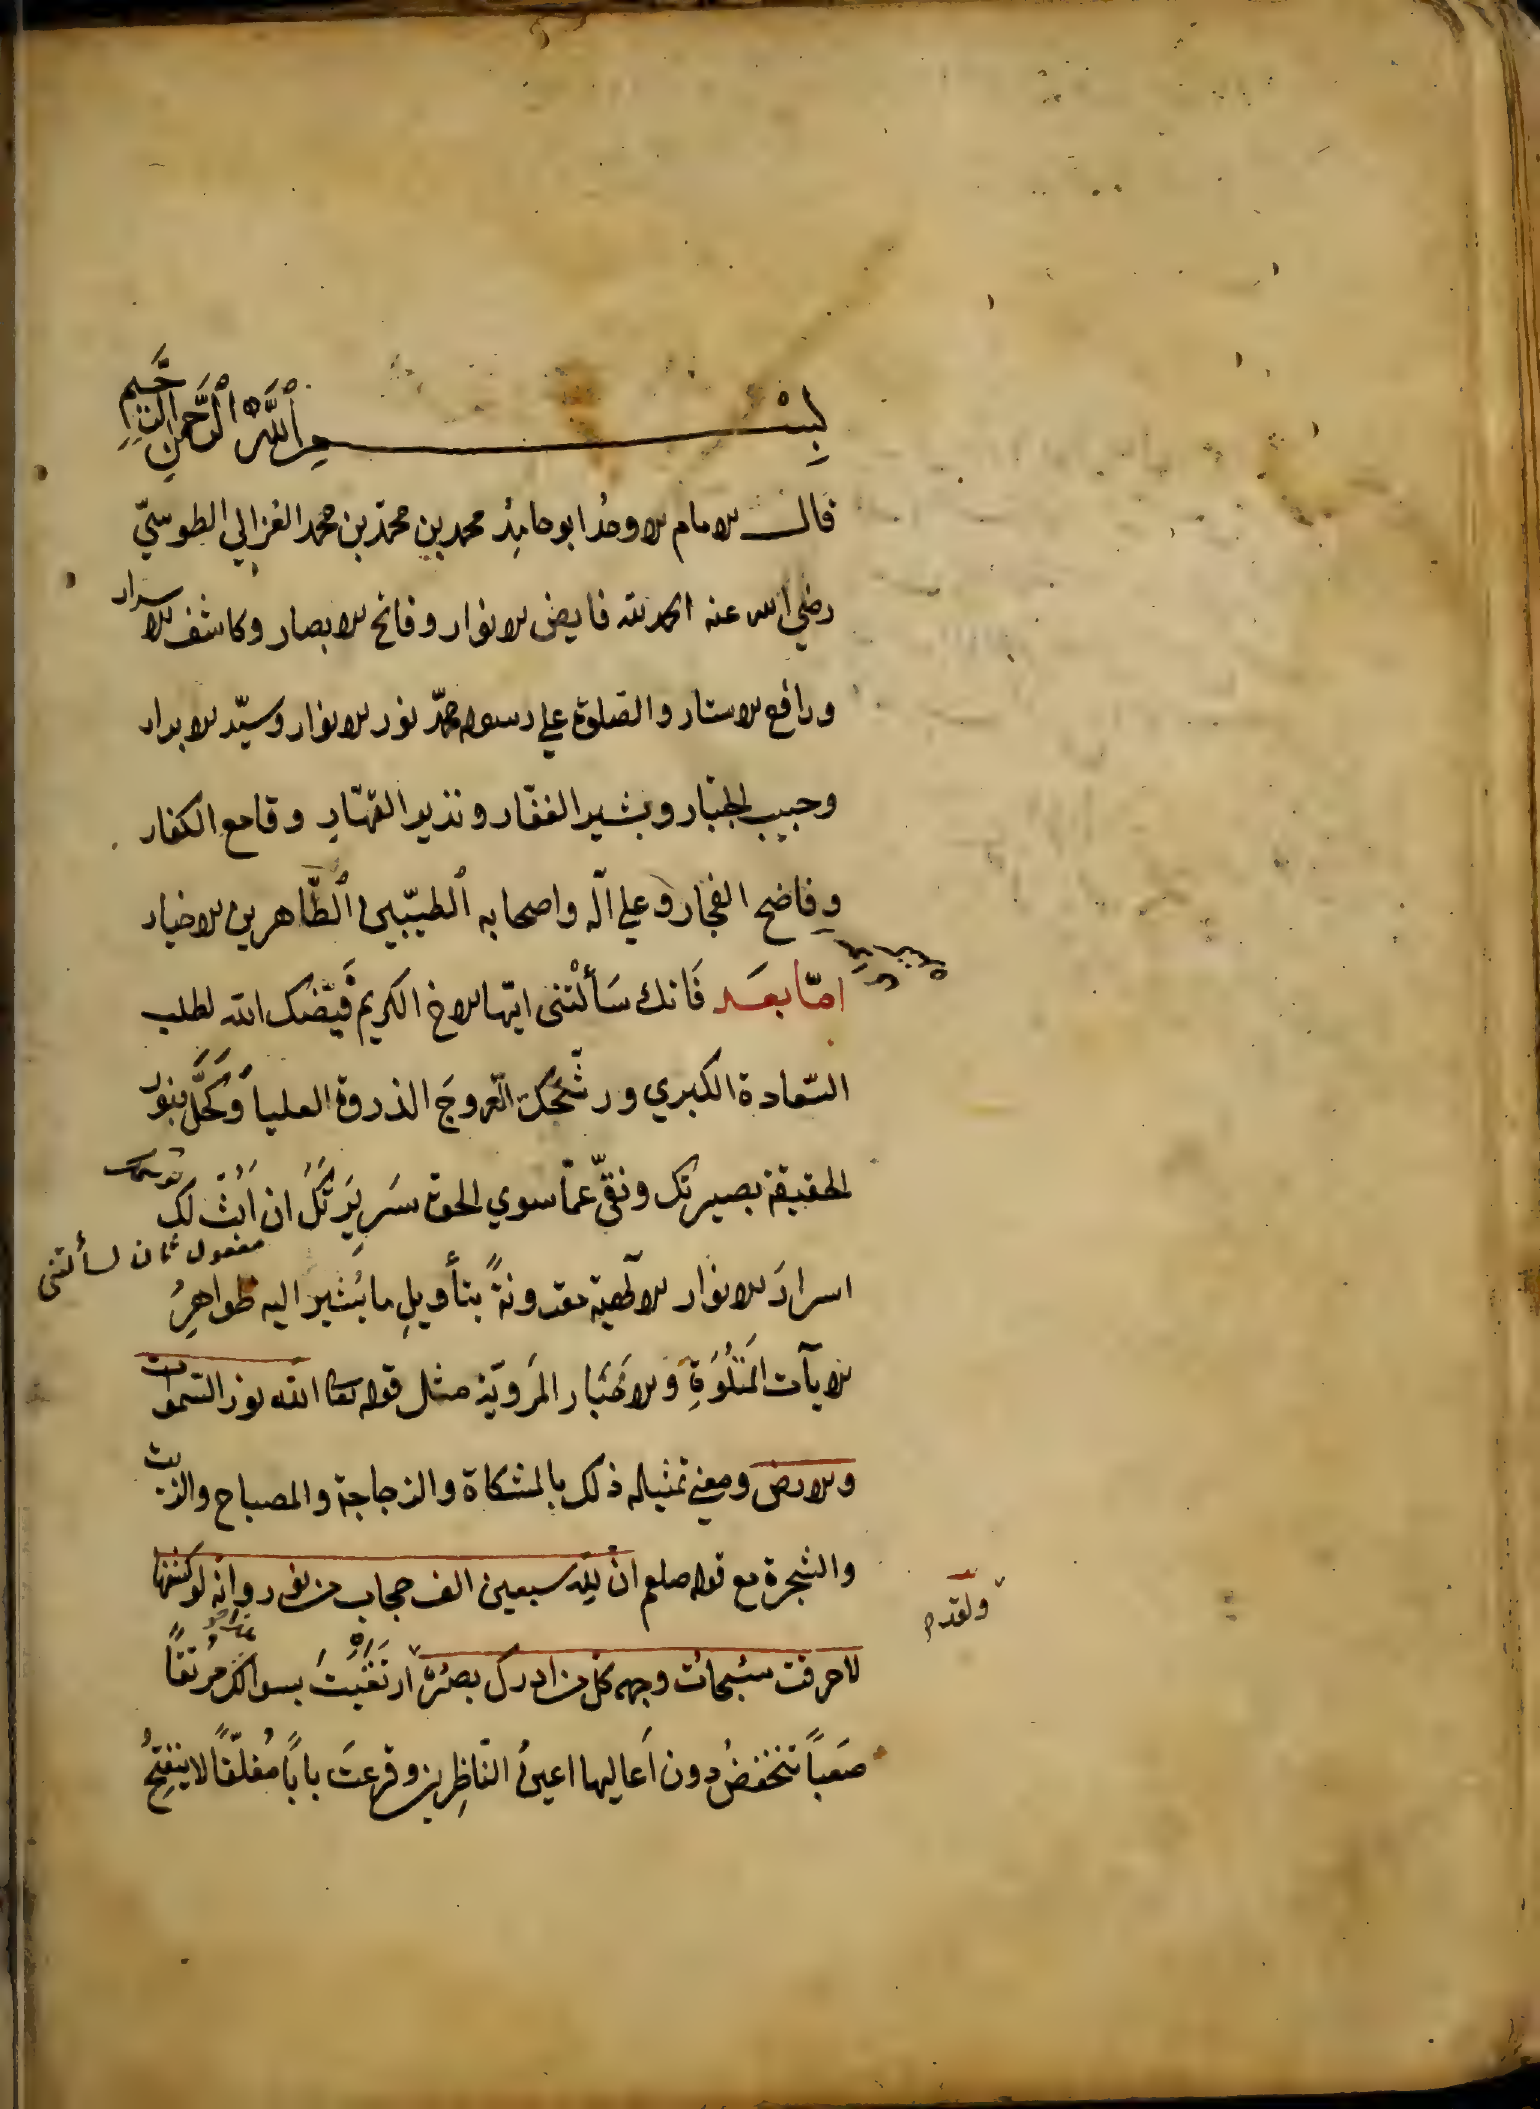 بِسْم اللّٰه الرَّحمن الرَّحيم
قال الامام الاوحد ابو حامد محمد بن محمّد بن محمد الغزالي الطوسيّ
رضي الله عنه الحمد لله فايض الانوار وفاتح الابصار وكاشف الاسرار
ورافع الاستار والصّلوة علي رسوله محمّد نور الانوار وسيّد الابرار
وحبيب الجبّار وبشير الغفّار ونذير القهّار وقامع الكفار
وفاضح الفجّار وعلي آله واصحابه الطيّبين الطّاهرين الاخيار
امّا بعد فانك سَألْتنى ايّها الاخ الكريم قَيَّضك الله لطلب
السّعادة الكبري ورشّحك للعروجَ الذروة العليا وكَحَّل بنور
الحقيقة بصيرتك ونقّي عمّا سوي الحق سَرِيرَتَكَ ان اَبُثّ لك
مفعول ثان لسألتنى
اسرارَ الانوار الالٓهية مقرونةً بتأويلِ ما يُشير اليه ظواهرُ
الايآت المَتْلُوَةِ والاَخْبار المَرويّة مثل قوله تعا الله نور السّموات
والارض ومعني تمثيله ذلك بالمشكاة والزجاجة والمصباح والزيت
والشجرة مع قوله صلعم انّ لِلّٰه سبعين الف حجاب من نور وانّه لو كشفها
ولقد م
لاحرقت سُبحات وجهه كل من ادرك بصره ارتَقَيْتَ بسوالك مُرتقًا
صَعبًا تنخفضُ دون اَعاليها اعينُ النّاظِرين وقرعتَ بابًا مُغلّقًا لا ينفتِحُ